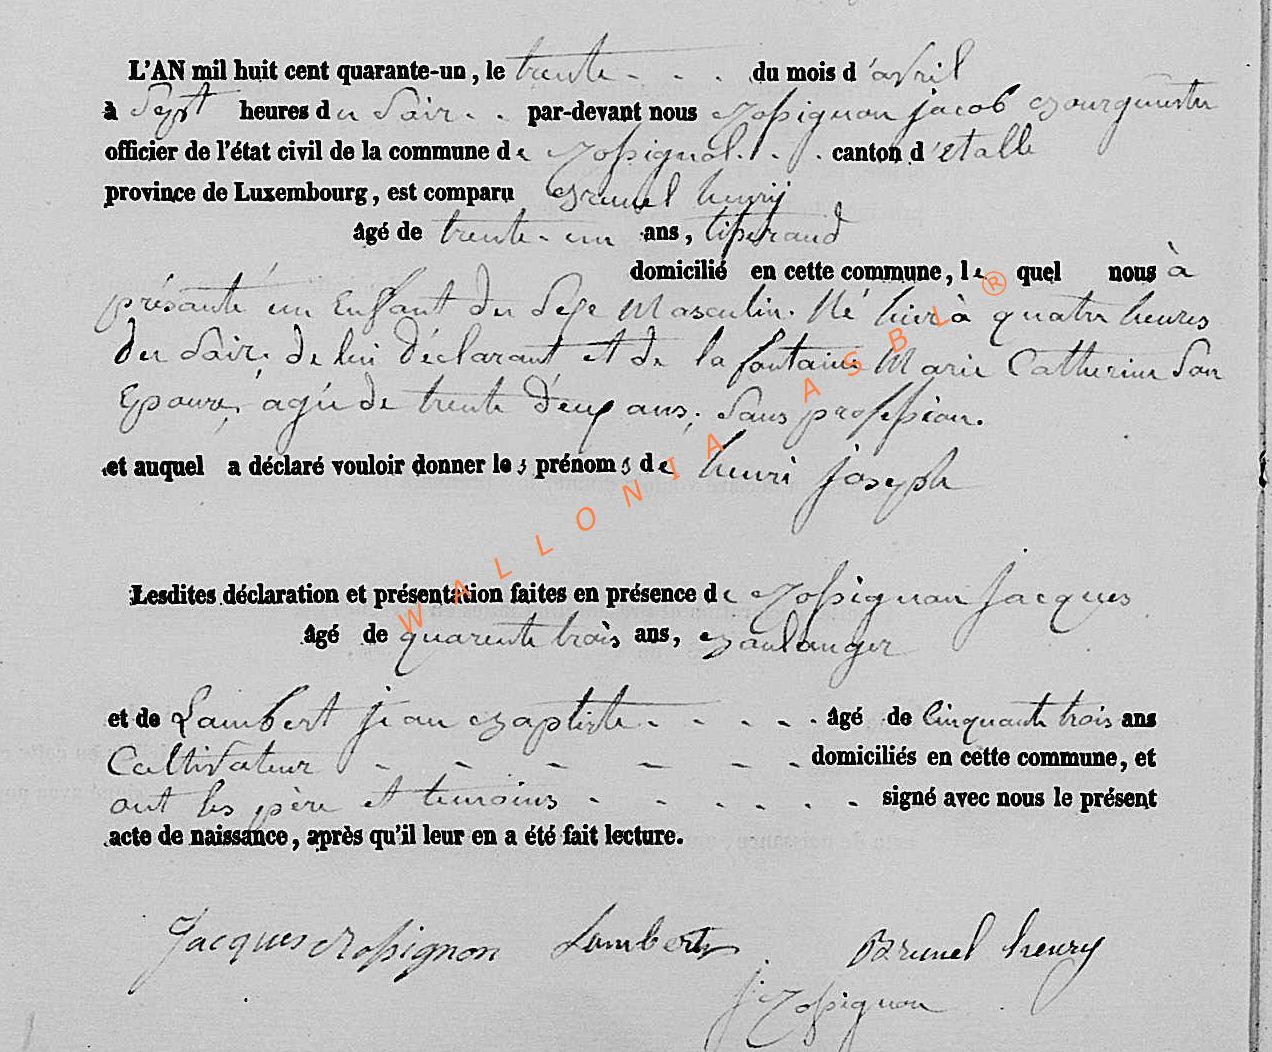 L'AN mil huit cent quarante-un, le trente - - . du mois d'avril
à Sept heures du Soir - . par-devant nous Rossignon jacob Bourguestre
officier de l'état civil de la commune de Rossignol . - . canton d'étalle
province de Luxembourg, est comparu Brunel henrij
âgé de trente-un ans, tiserand
domicilié en cette commune, lequel nous à
présanté un Enfant du Sexe Masculin. Né hier à quatre heures
du Soir, de lui déclarant et de la fontaine Marie Catherine Son
Epouse, agée de trente deux ans, Sans profession.
et auquel a déclaré vouloir donner les prénoms de henri joseph
Lesdites déclaration et présentation faites en présence de Rossignon jacques
âgé de quarente trois ans, Boulanger
et de Lambert jean Baptiste - - - - . âgé de Cinquante trois ans
Cultivateur - - - - - - domiciliés en cette commune, et
ont les père et temoins - - - - - - signé avec nous le présent
acte de naissance, après qu'il leur en a été fait lecture.
Jacques Rossignon Lambert Brunel henry
j. Rossignon
WALLONIA ASBL ®